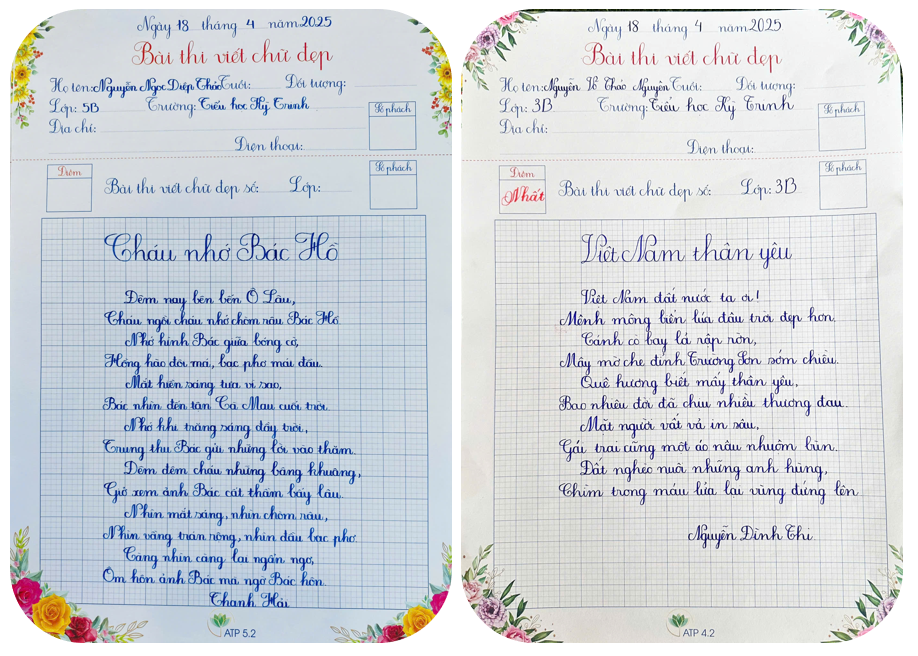 Ngày 18 tháng 4 năm 2025
Bài thi viết chữ đẹp
Họ tên: Nguyễn Ngọc Diệp Thảo Tuổi: Đối tượng:
Lớp: 5B Trường: Tiểu học Kỳ Trinh
Địa chỉ:
Điện thoại:
Số phách
Điểm
Bài thi viết chữ đẹp số: Lớp:
Số phách
Cháu nhớ Bác Hồ
Đêm nay bên bến Ô Lâu,
Cháu ngồi cháu nhớ chòm râu Bác Hồ.
Nhớ hình Bác giữa bóng cờ,
Hồng hào đôi má, bạc phơ mái đầu.
Mắt hiền sáng tựa vì sao,
Bác nhìn đến tận Cà Mau cuối trời.
Nhớ khi trăng sáng đầy trời,
Trung thu Bác gửi những lời vào thăm.
Đêm đêm cháu những bâng khuâng,
Giở xem ảnh Bác cất thầm bấy lâu.
Nhìn mắt sáng, nhìn chòm râu,
Nhìn vầng trán rộng, nhìn đầu bạc phơ.
Càng nhìn càng lại ngẩn ngơ,
Ôm hôn ảnh Bác mà ngờ Bác hôn.
Thanh Hải
ATP 5.2
Ngày 18 tháng 4 năm 2025
Bài thi viết chữ đẹp
Họ tên: Nguyễn Võ Thảo Nguyên Tuổi: Đối tượng:
Lớp: 3B Trường: Tiểu học Kỳ Trinh
Địa chỉ:
Điện thoại:
Số phách
Điểm
Nhất
Bài thi viết chữ đẹp số: Lớp: 3B
Số phách
Việt Nam thân yêu
Việt Nam đất nước ta ơi!
Mênh mông biển lúa đâu trời đẹp hơn.
Cánh cò bay lả rập rờn,
Mây mờ che đỉnh Trường Sơn sớm chiều.
Quê hương biết mấy thân yêu,
Bao nhiêu đời đã chịu nhiều thương đau.
Mặt người vất vả in sâu,
Gái trai cũng một áo nâu nhuộm bùn.
Đất nghèo nuôi những anh hùng,
Chìm trong máu lửa lại vùng đứng lên
Nguyễn Đình Thi
ATP 4.2